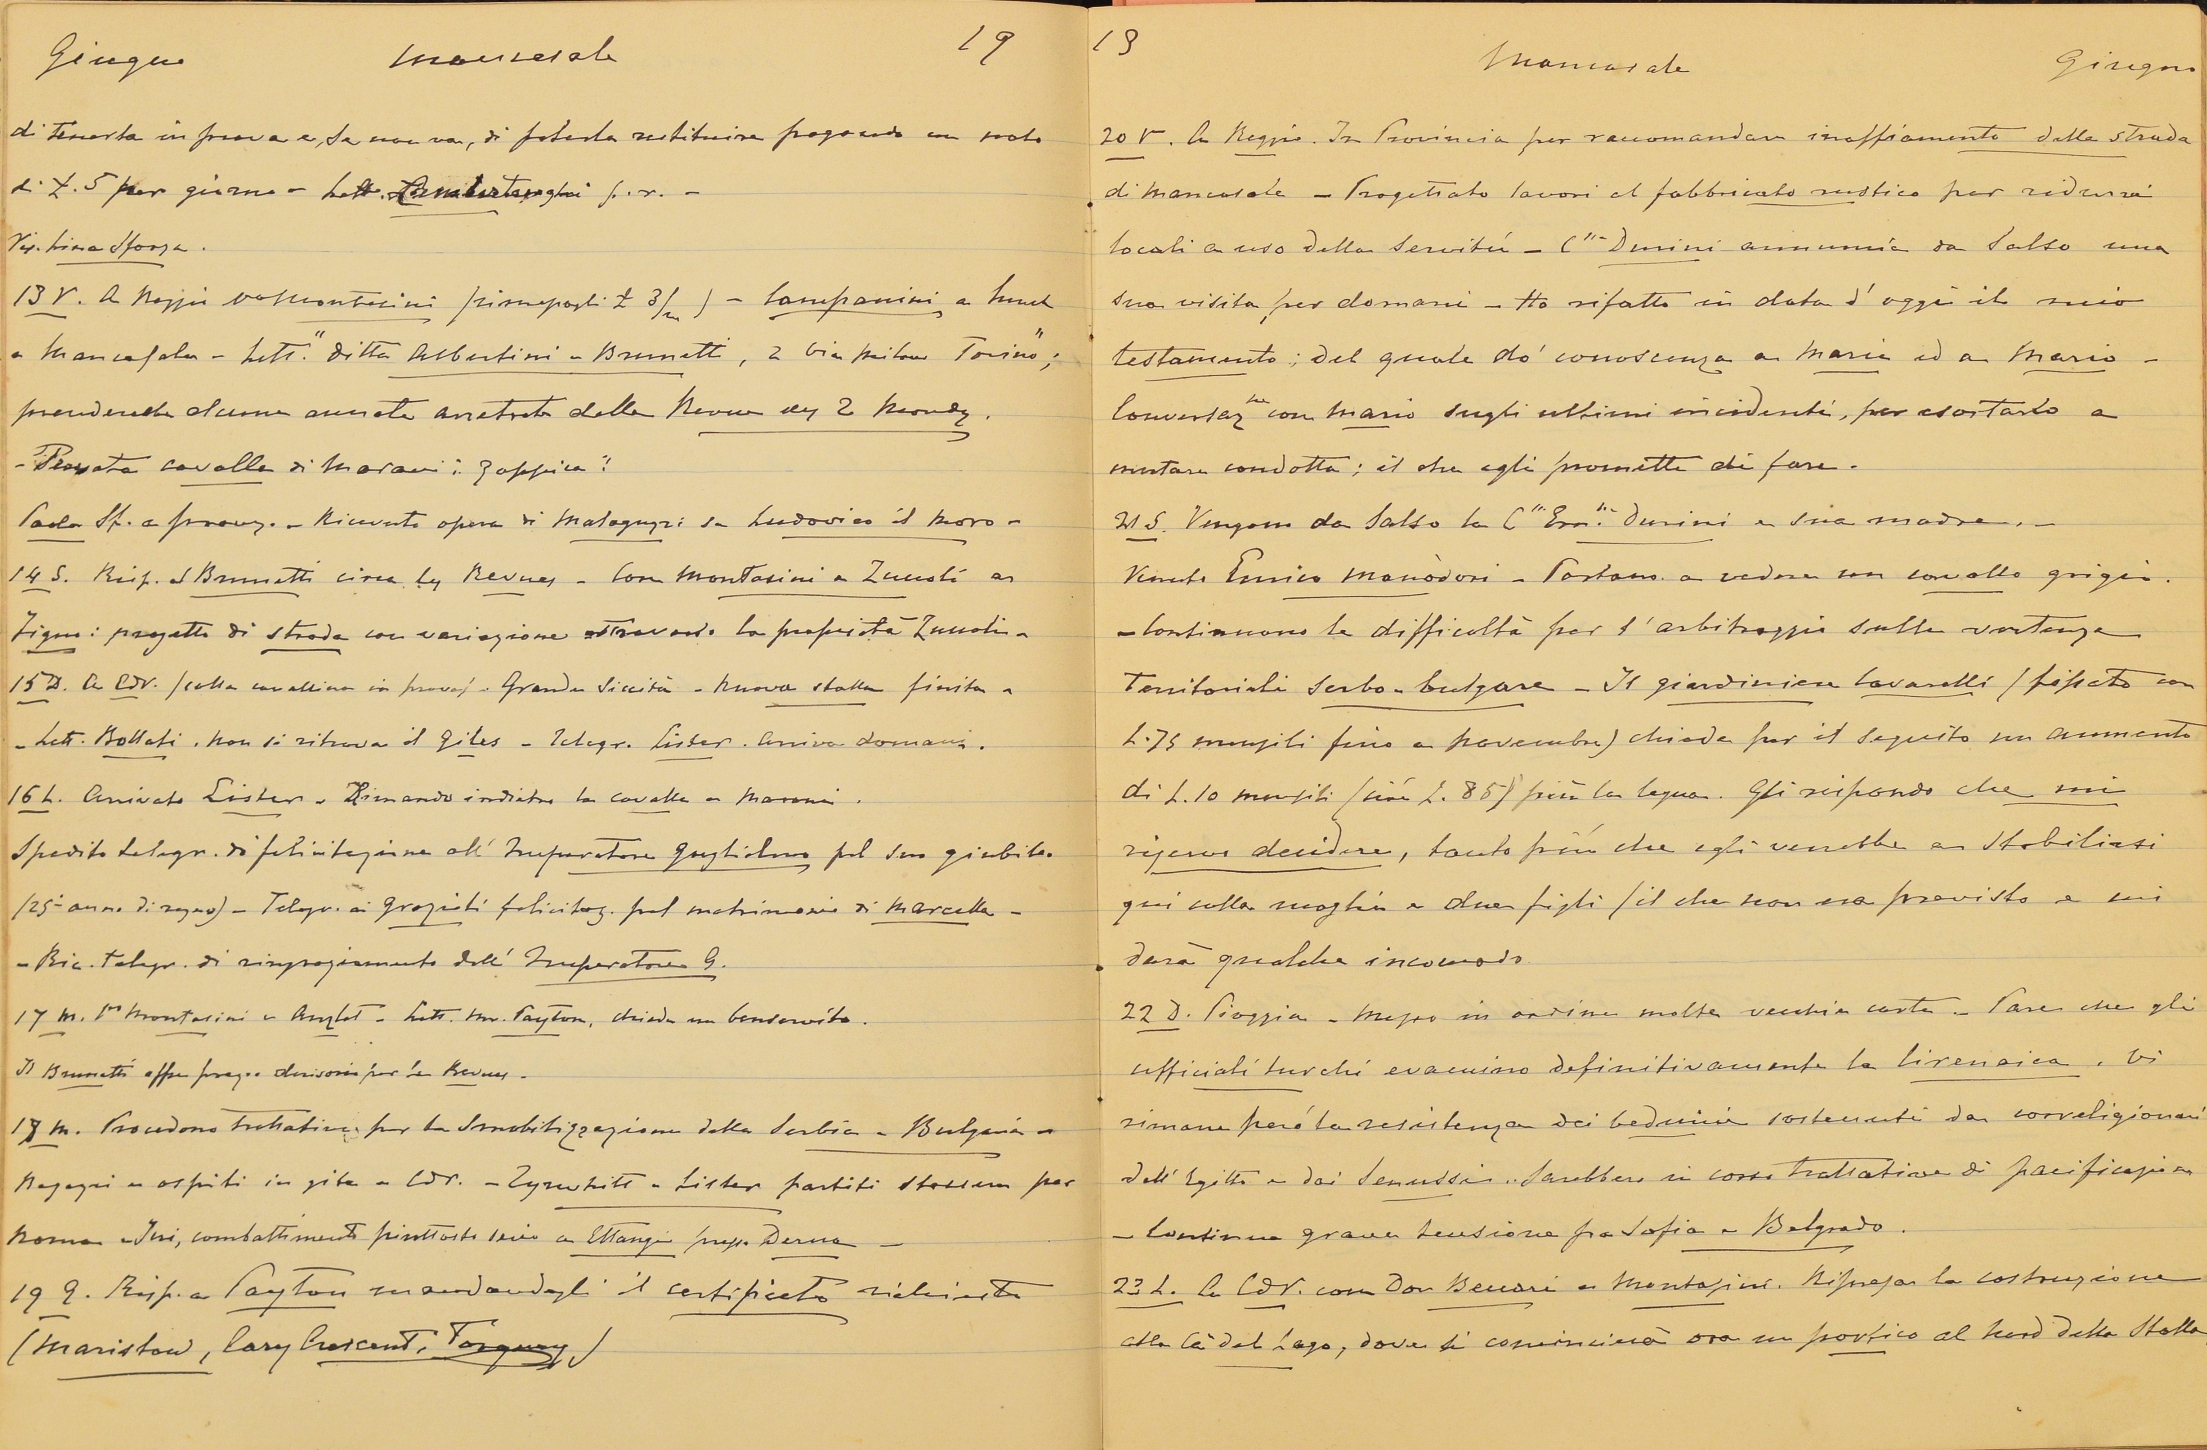 Giugno Mancasale 19
di tenerla in prova e, se non va, di poterla restituire pagando un nolo
di £. 5 per giorno - Lett. p. r. -
Vis. Lina Sforza.
13 V. A Reggio Montasini - Campanini a lunch
a Mancasale - Lett. "ditta Albertini e Brunetti, 2 via Milano Torino",
prendendo alcune annate arretrate della Revue des 2 Mondes.
- Provata cavalla di Marani: "Zaffira"!
Paola Sf. a pranzo. - Ricevuto opera di Malaguzzi su Ludovico il Moro -
14 S. Risp. al Brunetti circa les Revues - Con Montasini a Zuccoli a
: progetto di strada con variazione attraverso la proprietà Zuccoli -
15 D. A CdV. (colla cavallina in prova) - Grande siccità - Nuova stalla finita -
- Lett. Bollati. Non si ritrova il Giles - Telegr. Lister. Arriva domani.
16 L. Arrivato Lister - Rimando indietro la cavalla a Marani.
Spedito telegr. di felicitazione all' Imperatore Guglielmo pel suo giubileo
(25° anno di regno) - Telegr. ai Grazioli felicitaz. pel matrimonio di Marcella -
- Ric. telegr. di ringraziamento dell' Imperatore G.
17 M. Montasini e - Lett. Mr. Payton, chiede un benservito.
Il Brunetti offre prezzo derisorio per le Revues.
18 M. Procedono trattative per la smobilizzazione della Serbia e Bulgaria -
Ragazzi e ospiti in gita a CdV. - Tyrwhitt e Lister partiti stassera per
Roma - Ieri, combattimento piuttosto serio a Ettangi presso Derna -
19 G. Risp. a Payton mandandogli il certificato richiesto
(Maristow, Cary Crescent, Torquay)
13 Mancasale Giugno
20 V. A Reggio. In Provincia per raccomandare inaffiamento della strada
di Mancasale - Progettato lavori al fabbricato rustico per ridurre
locali a uso della servitù - Cssa Durini annuncia da Salso una
sua visita per domani - Ho rifatto in data d'oggi il mio
testamento; del quale do' conoscenza a Maria ed a Mario -
Conversazne con Mario sugli ultimi incidenti, per esortarlo a
mutare condotta; il che egli promette di fare.
21 S. Vengono da Salso la Cssa Durini e sua madre. -
Venuto Enrico Manòdori - Portano a vedere un cavallo grigio.
- Continuano le difficoltà per l'arbitraggio sulla vertenza
territoriale serbo-bulgara - Il giardiniere Cavarelli (fissato con
L. 75 mensili fino a novembre) chiede per il seguito un aumento
di L. 10 mensili (cioè L. 85) più la legna. Gli rispondo che mi
riservo decidere, tanto più che egli verrebbe a stabilirsi
qui colla moglie e due figli (il che non era previsto e mi
darà qualche incomodo
22 D. Pioggia - Messo in ordine molte vecchie carte - Pare che gli
ufficiali turchi evacuino definitivamente la Cirenaica. Vi
rimane però la resistenza dei beduini sostenuti da correligionari
dell'Egitto e dai Senussi. Sarebbero in corso trattative di pacificazione
- Continua grave tensione fra Sofia e Belgrado.
23 L. A CdV. con Don Beccari e Montasini. Ripresa la costruzione
alla Cà del Lago, dove si comincierà ora un portico al Nord della Stalla